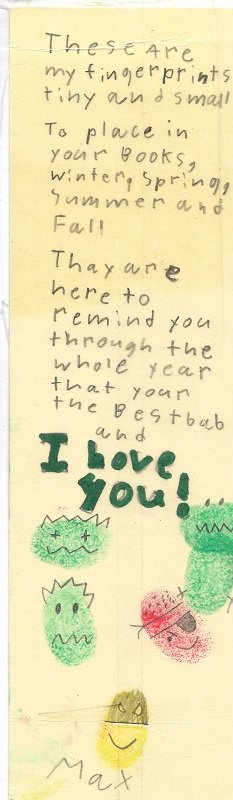 These Are
my fingerprints
tiny and small
To place in
your Books,
winter, Spring,
Summer and
Fall
Thay are
here to
remind you
through the
whole year
that your
the Bestbab
and
I love
you!
Max